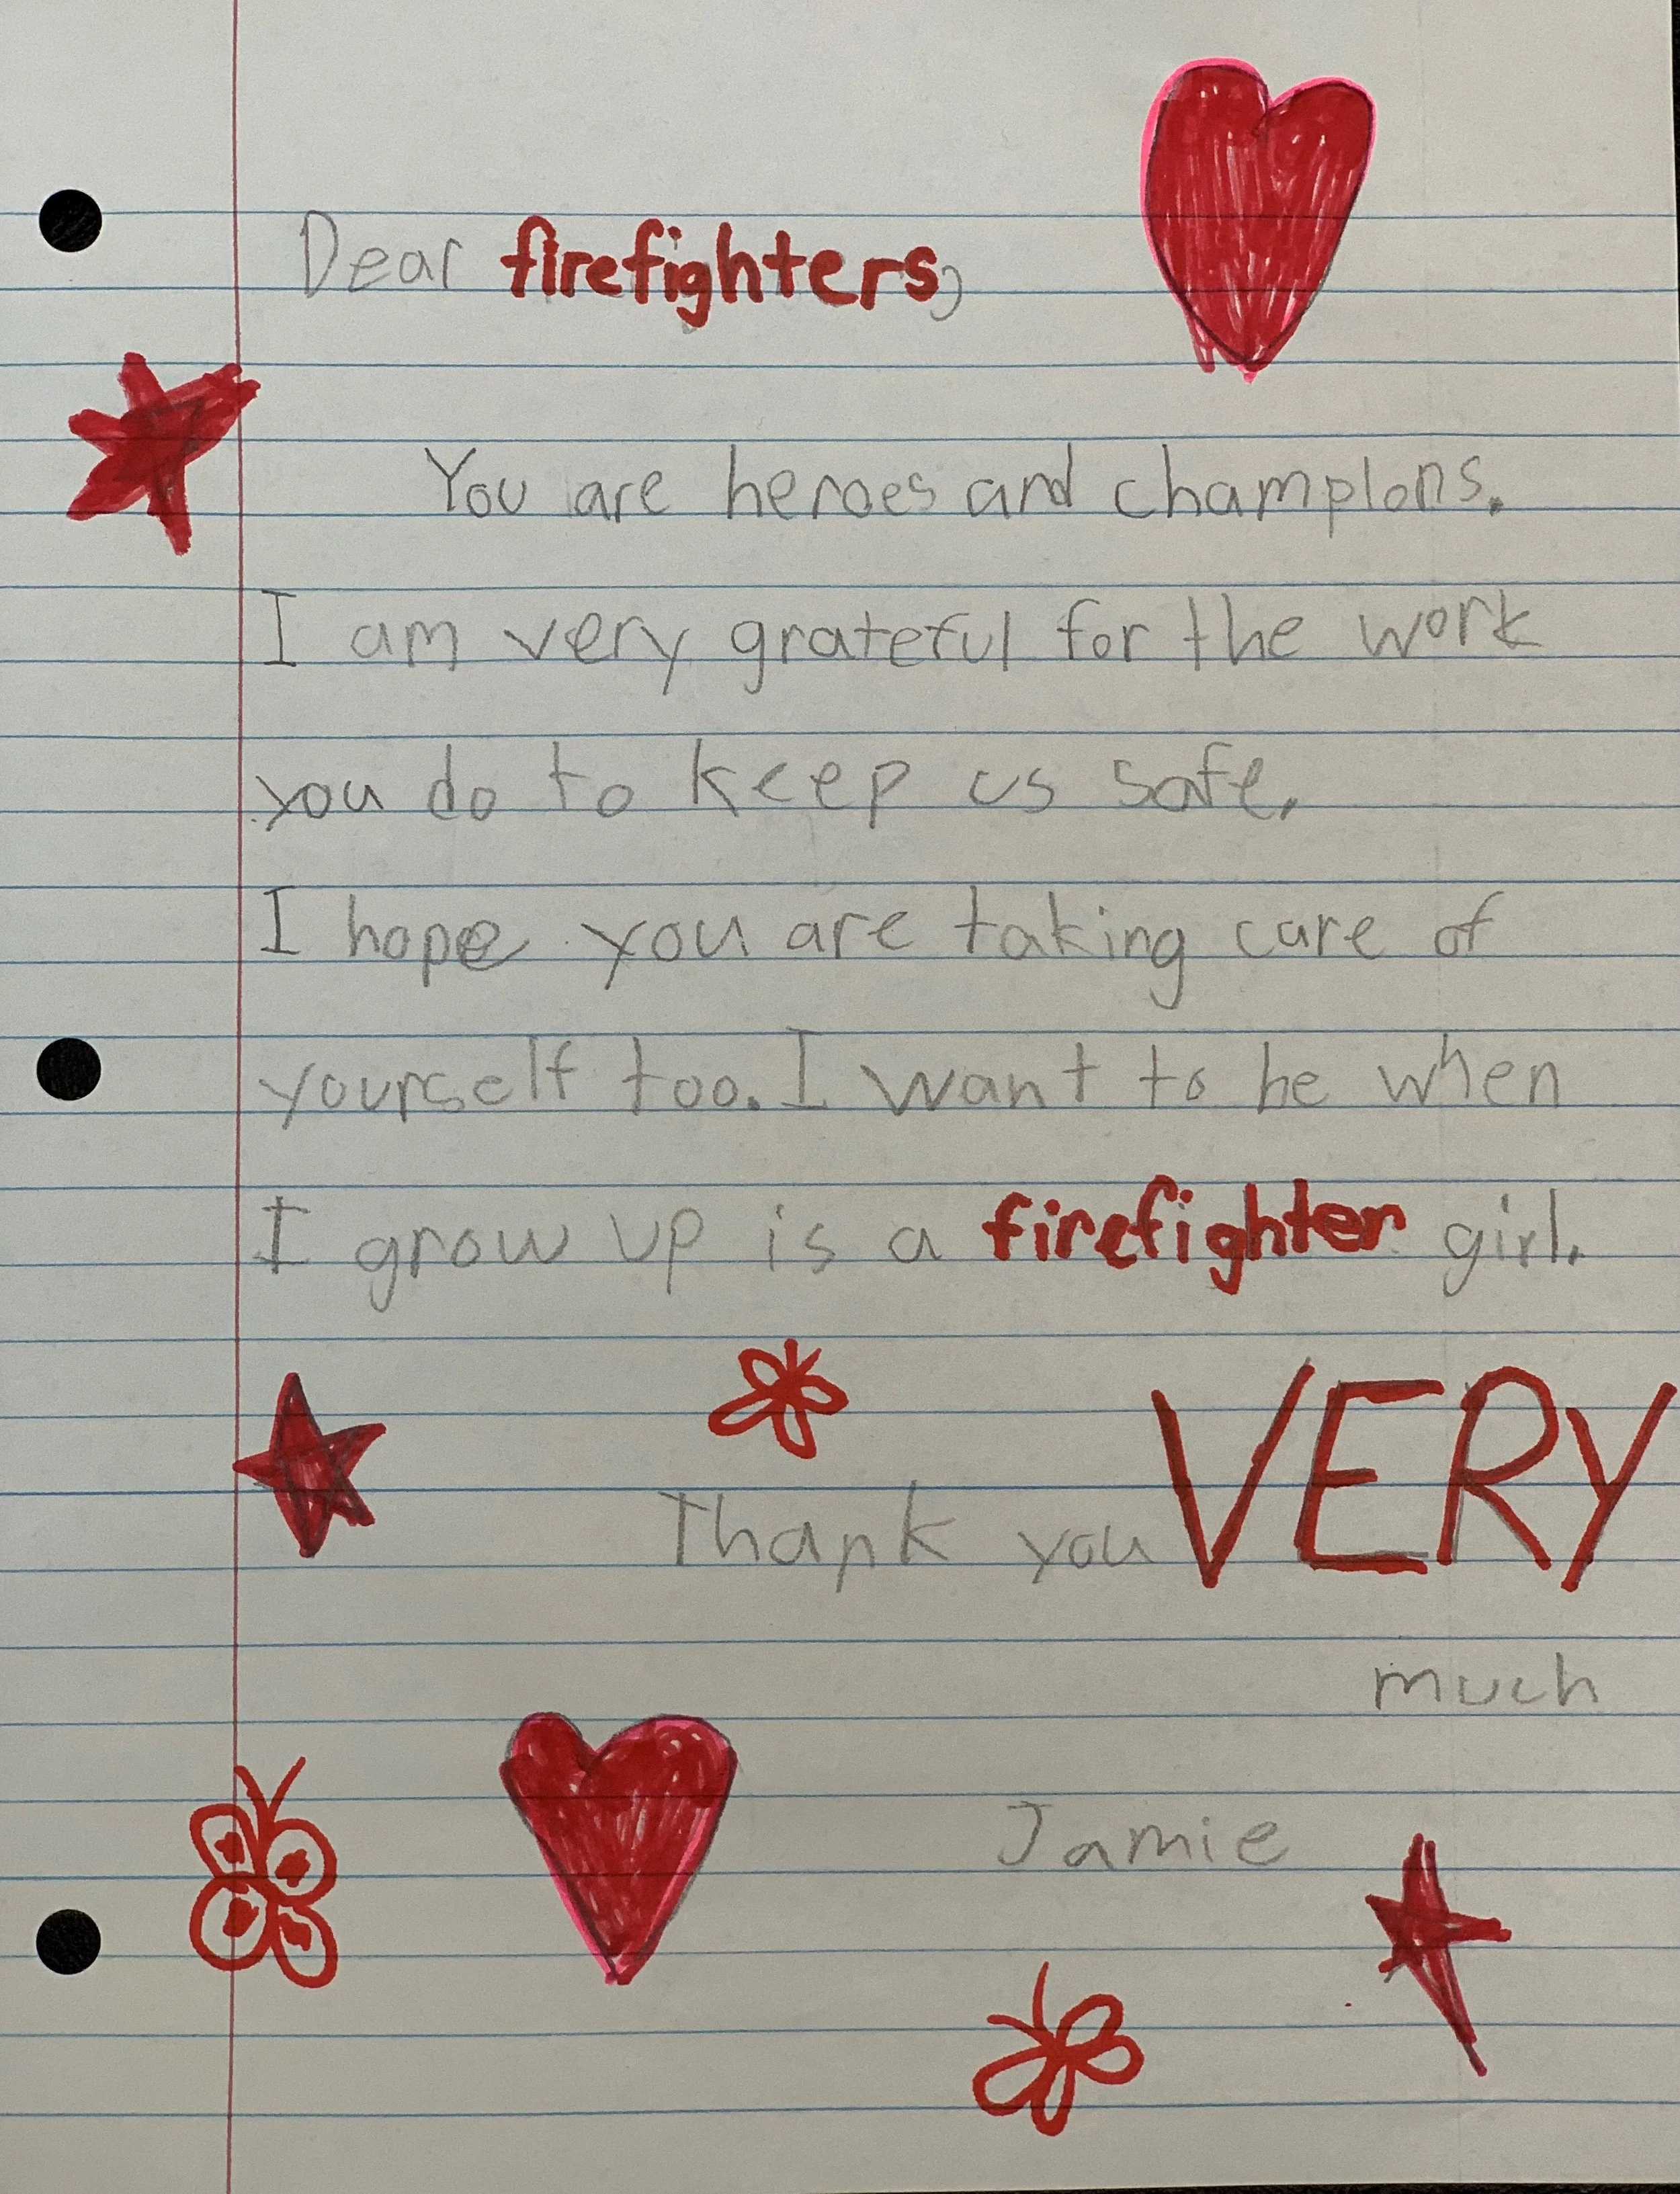 Dear firefighters,
You are heroes and champions.
I am very grateful for the work
you do to keep us safe.
I hope you are taking care of
yourself too. I want to be when
I grow up is a firefighter girl.
Thank you VERY
much
Jamie